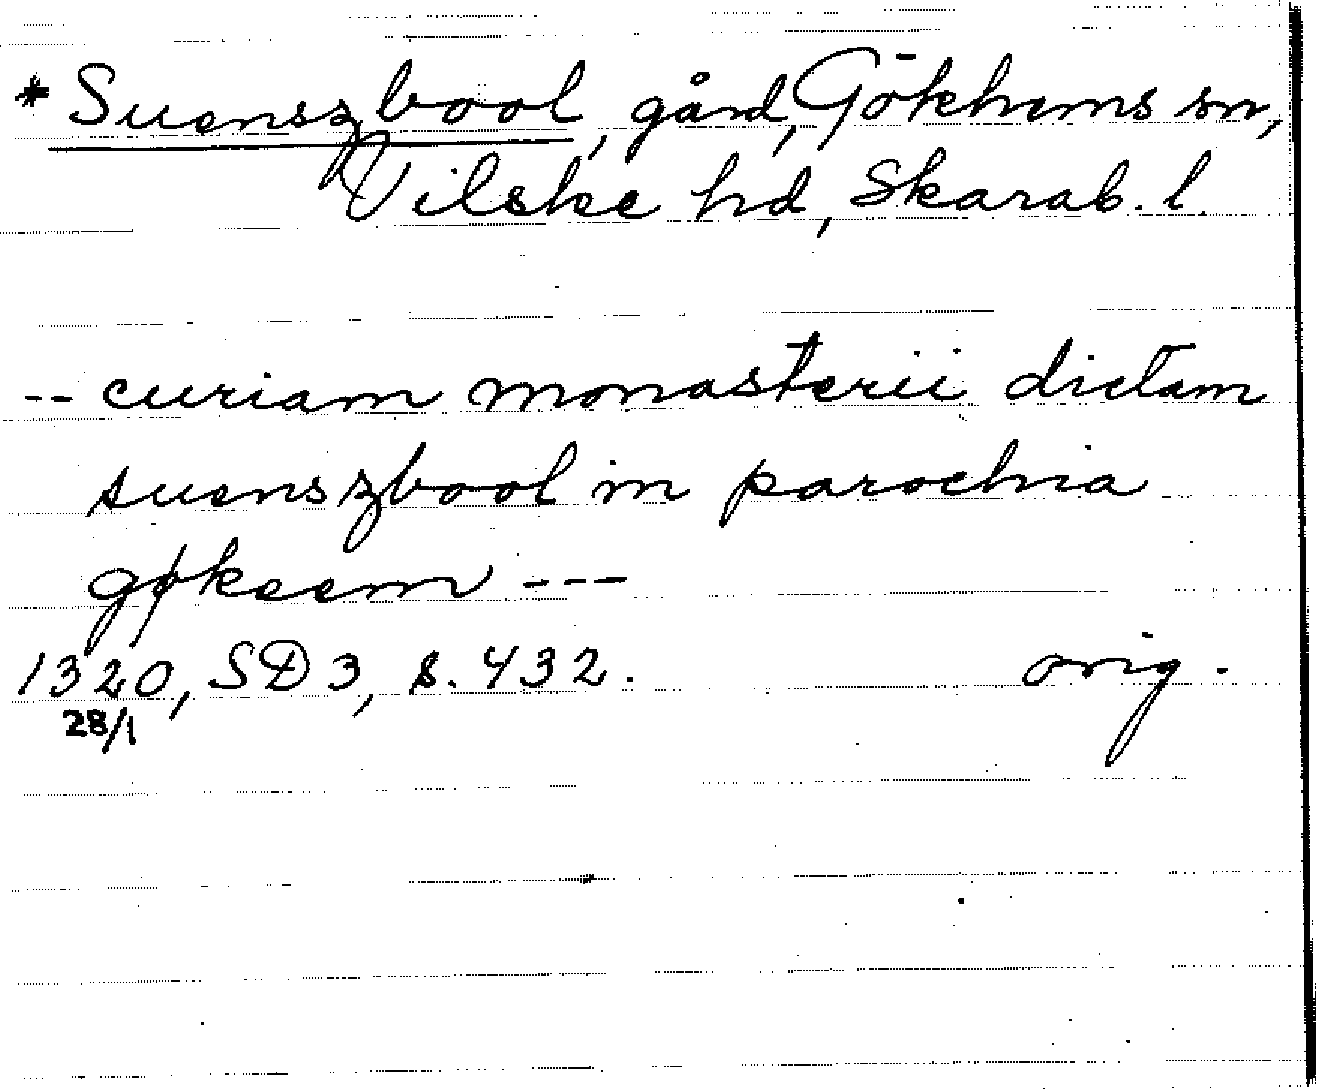 * Suenszbool, gård, Gökhems sn,
Vilske hd, Skarab. l.
-- curiam monasterii dictam
suenszbool in parochia
gøkeem ---
1320, SD 3, s. 432. orig.
28/1